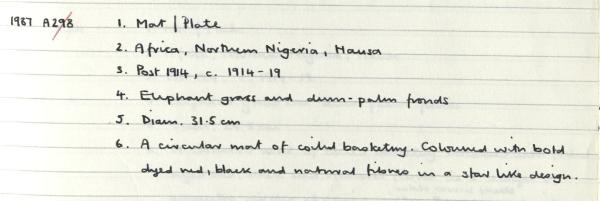 1987 A298 1. Mat | Plate
2. Africa, Northern Nigeria, Hausa
3. Post 1914, c. 1914-19
4. Elephant grass and dum-palm fronds
5. Diam. 31.5 cm
6. A circular mat of coiled basketry. Coloured with bold
dyed red, black and natural fibres in a star like design.